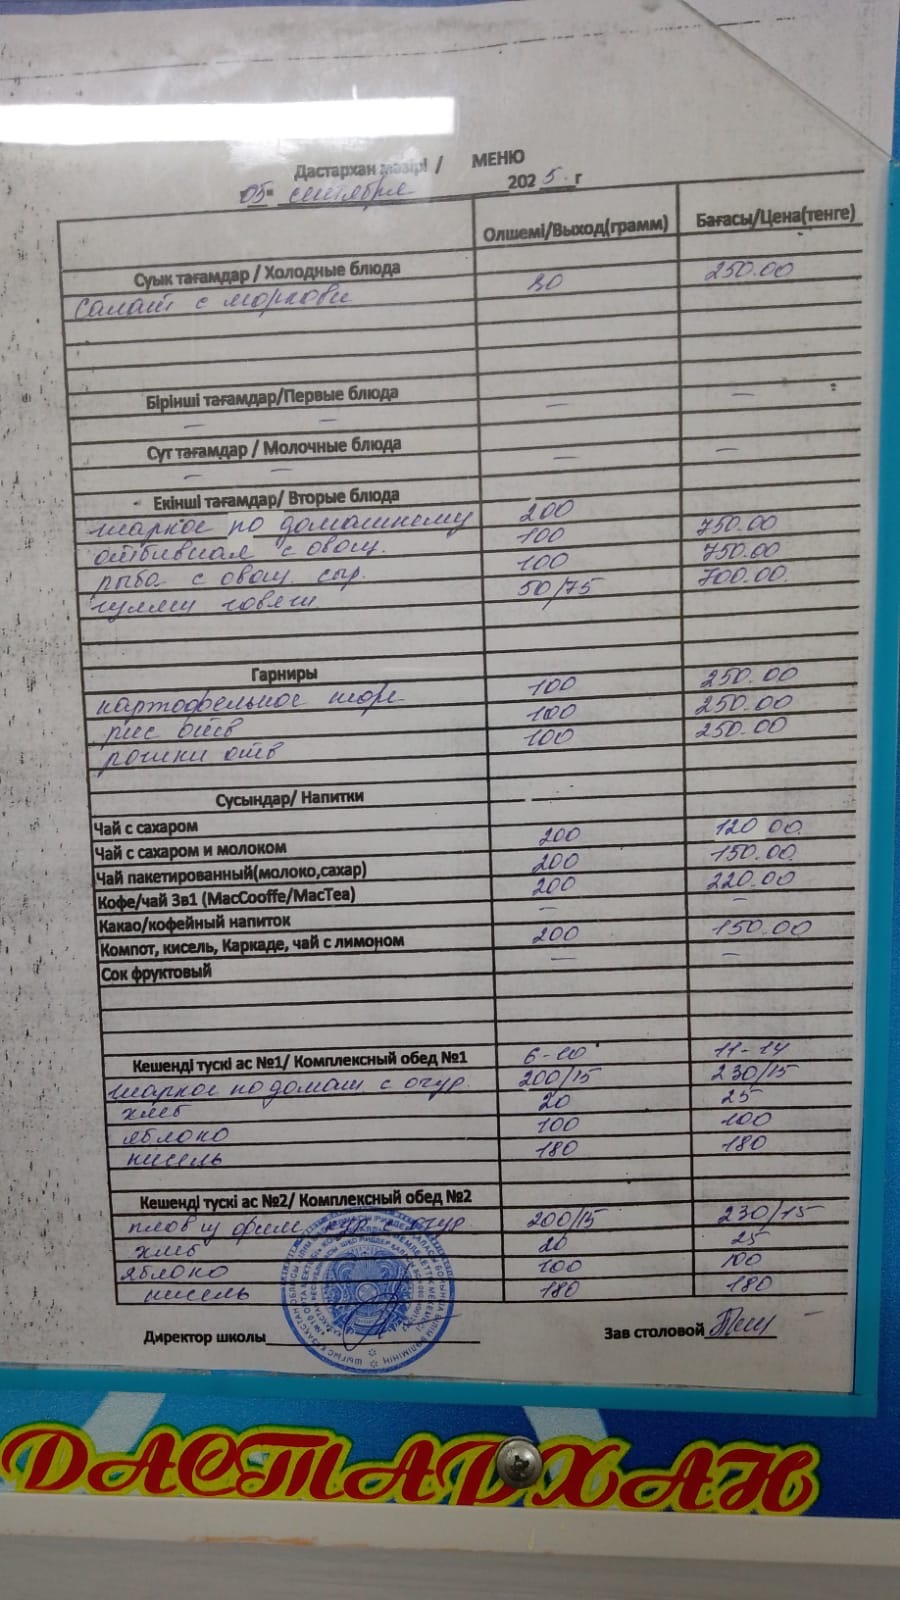 Дастархан мәзірі / МЕНЮ
"05" сентября 2025 г
Олшемі/Выход(грамм) Бағасы/Цена(тенге)
Суык тағамдар / Холодные блюда
салат с моркови 80 250.00
Бірінші тағамдар/Первые блюда
— — — —
Сут тағамдар / Молочные блюда
— — — —
Екінші тағамдар/ Вторые блюда
жаркое по домашнему 200
отбивная с овощ. 100 750.00
рыба с овощ. сыр. 100 750.00
гуляш говяги 50/75 700.00
Гарниры
картофельное пюре 100 250.00
рис отв 100 250.00
рожки отв 100 250.00
Сусындар/ Напитки
Чай с сахаром 200 120 00
Чай с сахаром и молоком 200 150.00
Чай пакетированный(молоко,сахар) 200 220.00
Кофе/чай 3в1 (MacCooffe/MacTea) — —
Какао/кофейный напиток
Компот, кисель, Каркаде, чай с лимоном 200 150.00
Сок фруктовый — —
Кешенді тускі ас №1/ Комплексный обед №1 6-10 11-14
жаркое по домаш с огур. 200/15 230/15
хлеб 20 25
яблоко 100 100
кисель 180 180
Кешенді тускі ас №2/ Комплексный обед №2
плов из филе кур с огур 200/15 230/15
хлеб 20 25
яблоко 100 100
кисель 180 180
Директор школы Зав столовой
ДАСТАРХАН